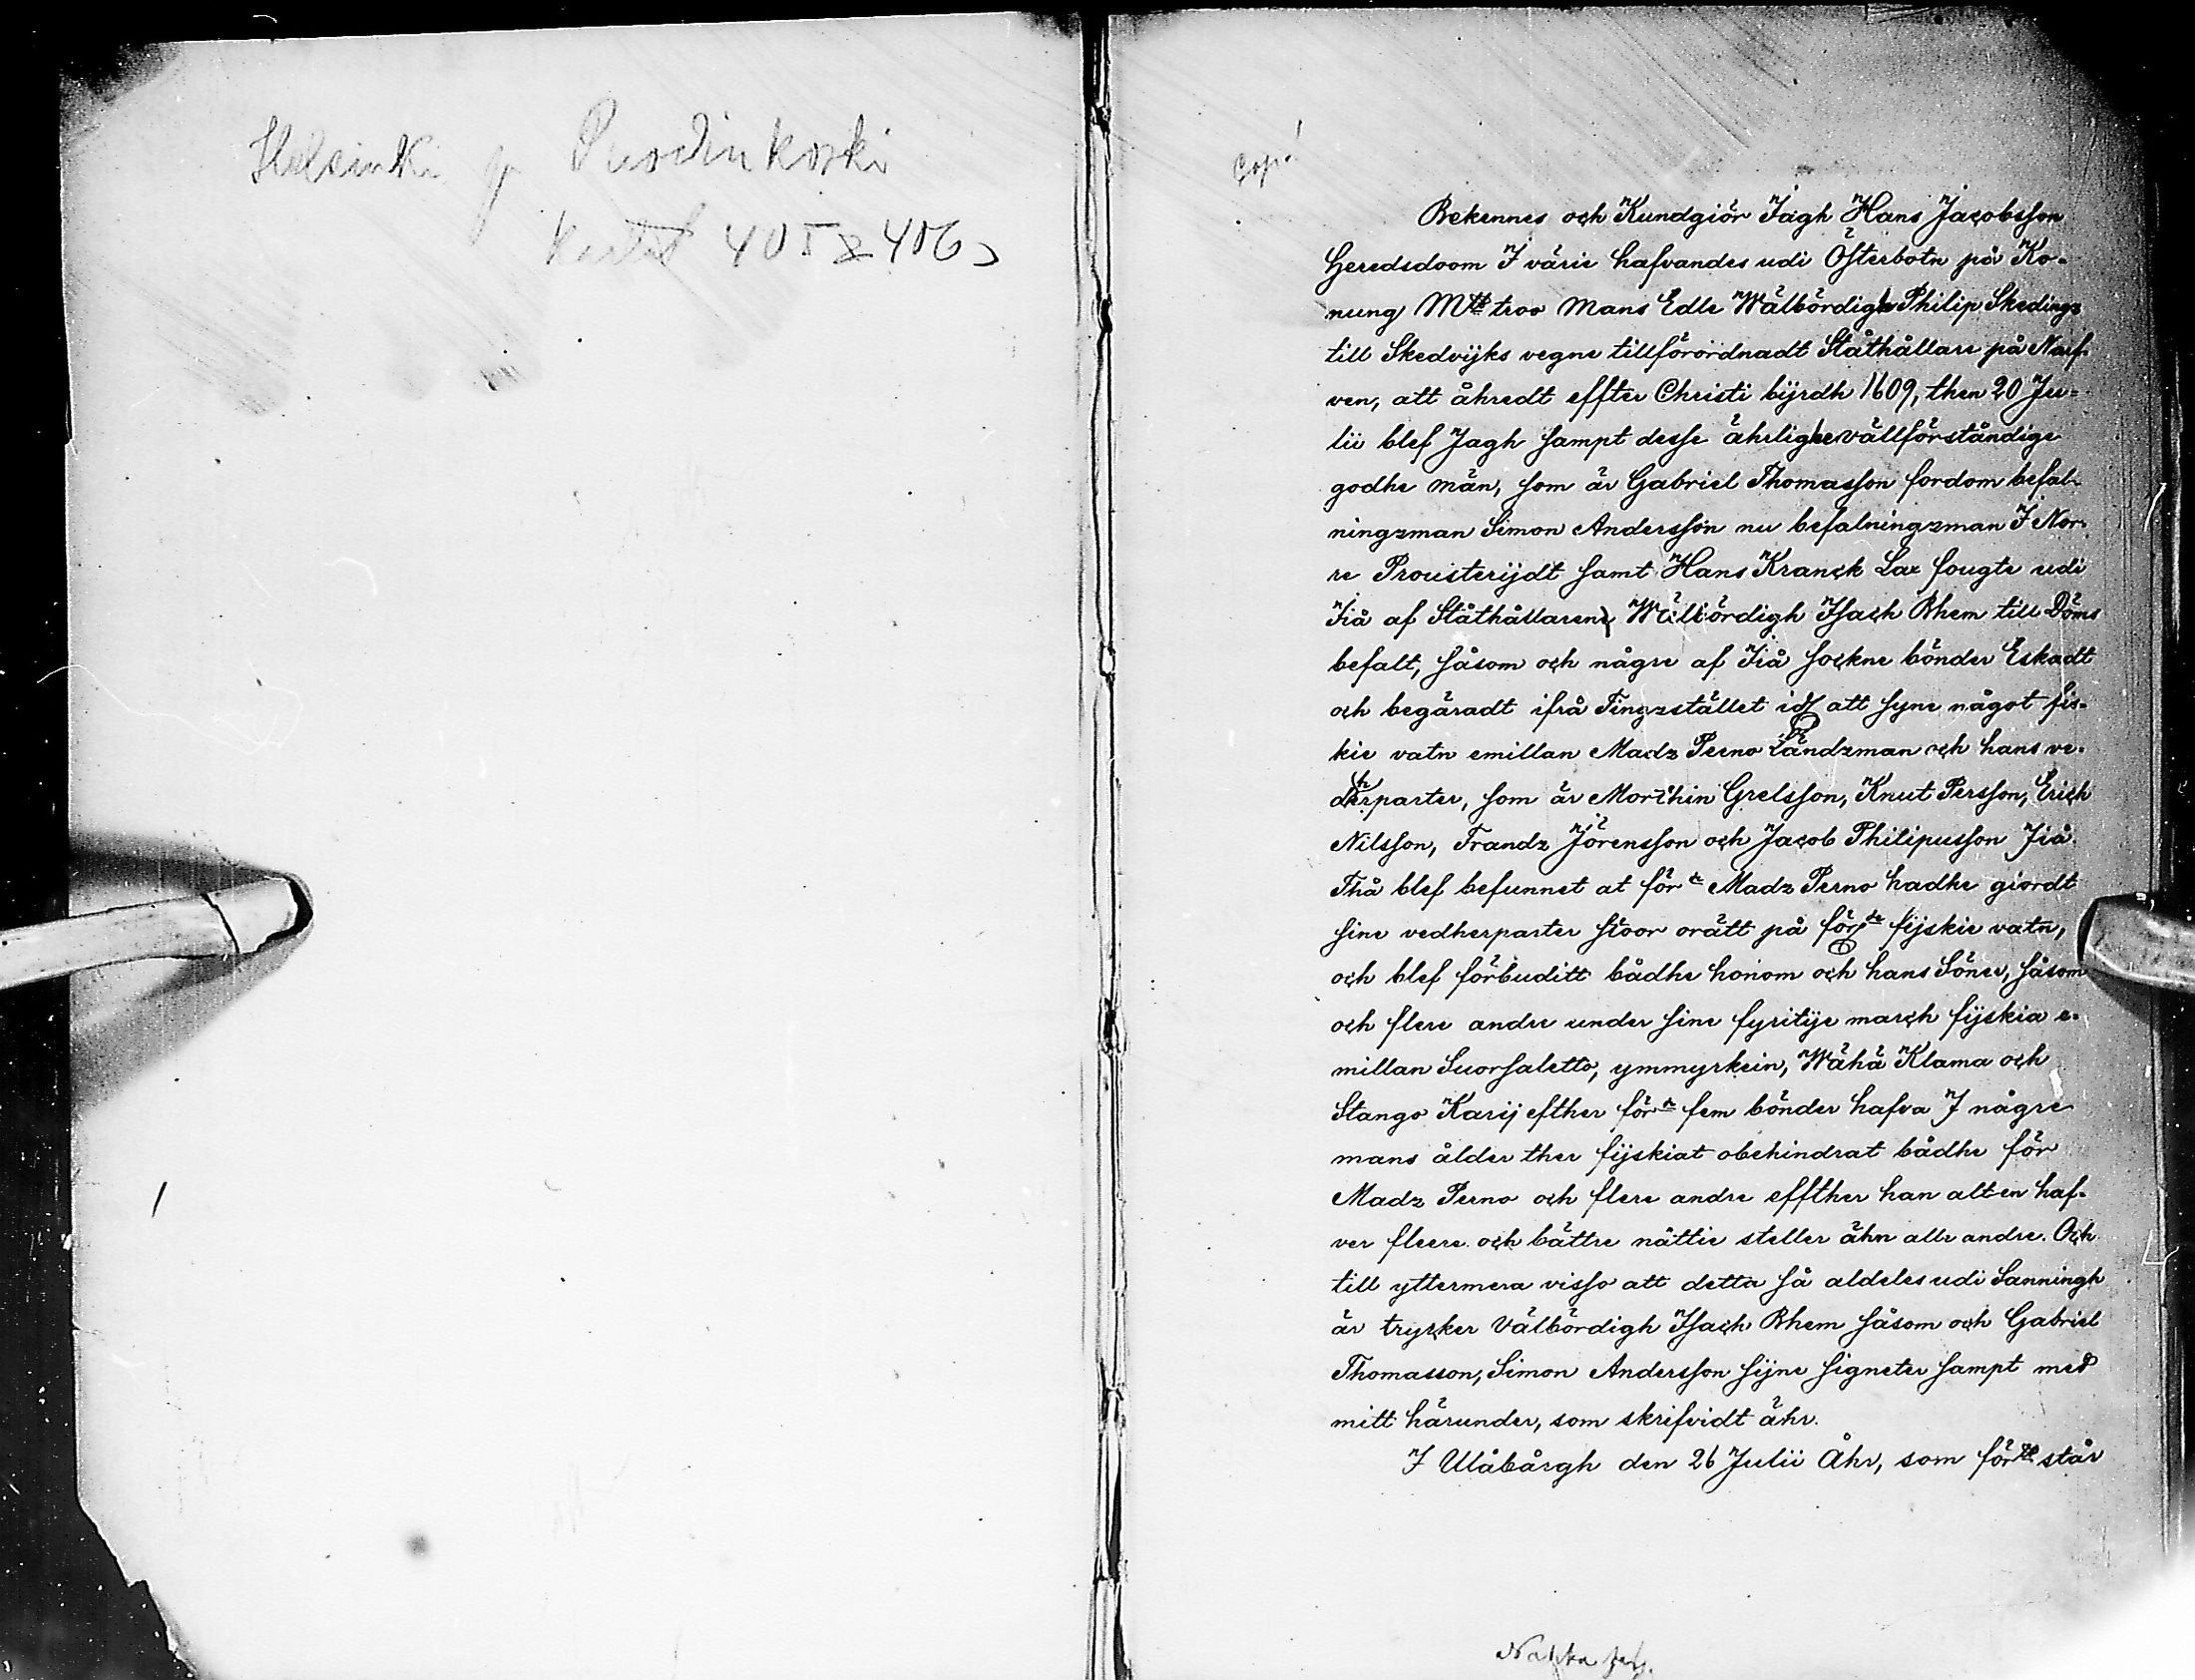 Helsinki
405 & 406
Copia
Bekennes och Kundgiör Jagh Hans Jacobsson
Heredsdoom I värie hafvandes udi Österbotn på Ko-
nung Mttz troo Mans Edle Wälbördighe Philip Skedings
till Skedvijks vegne tillförordnadt Ståthållare på Naf-
ven, att åhredt effter Christi bÿrdh 1609, then 20 Ju-
lii blef Jagh sampt desse ährlighe vällförståndige
godhe män, som är Gabriel Thomasson fordom befal-
ningzman Simon Andersson nu befalningzman I Nor-
re Prousterijdt samt Hans Kranck Lax fougte udi
Jiå af Ståthållarene Wälbördigh Isach Bhem till Döms
befalt, såsom och någre af Jiå sockne bönder Eskadt
och begäradt ifrå Tingzstället att syne något fis-
kie vatn emillan Madz Perno Ländzman och hans ve-
dherparter, som är Morthin Grelsson, Knut Persson, Erich
Nilsson, Frandz Jörensson och Jacob Philipusson Jiå.
Thå blef befunnet at förne Madz Perno hadhe giordt
sine vedherparter stoor orätt på förde fijskie vatn,
och blef förbuditt bådhe honom och hans Söner, såsom
och flere andre under sine fyritije march fijskia e-
millan Suorsaletto, ymmyrkein, Wähä Klama och
Stango Karij efther förne fem bönder hafva I någre
mans ålder ther fijskiat obehindrat bådhe för
Madz Perno och flere andre effther han alt en haf-
ver fleere och bättre nättie steller ähn alle andre. Och
till yttermera visso att detta så aldeles udi Sanningh
är trycker Välbördigh Isach Bhem såsom och Gabriel
Thomasson, Simon Andersson sijne signeter sampt med
mitt härunder, som skrifvidt ähr.
I Ulåbårgh den 26 Julii Åhr, som förre står